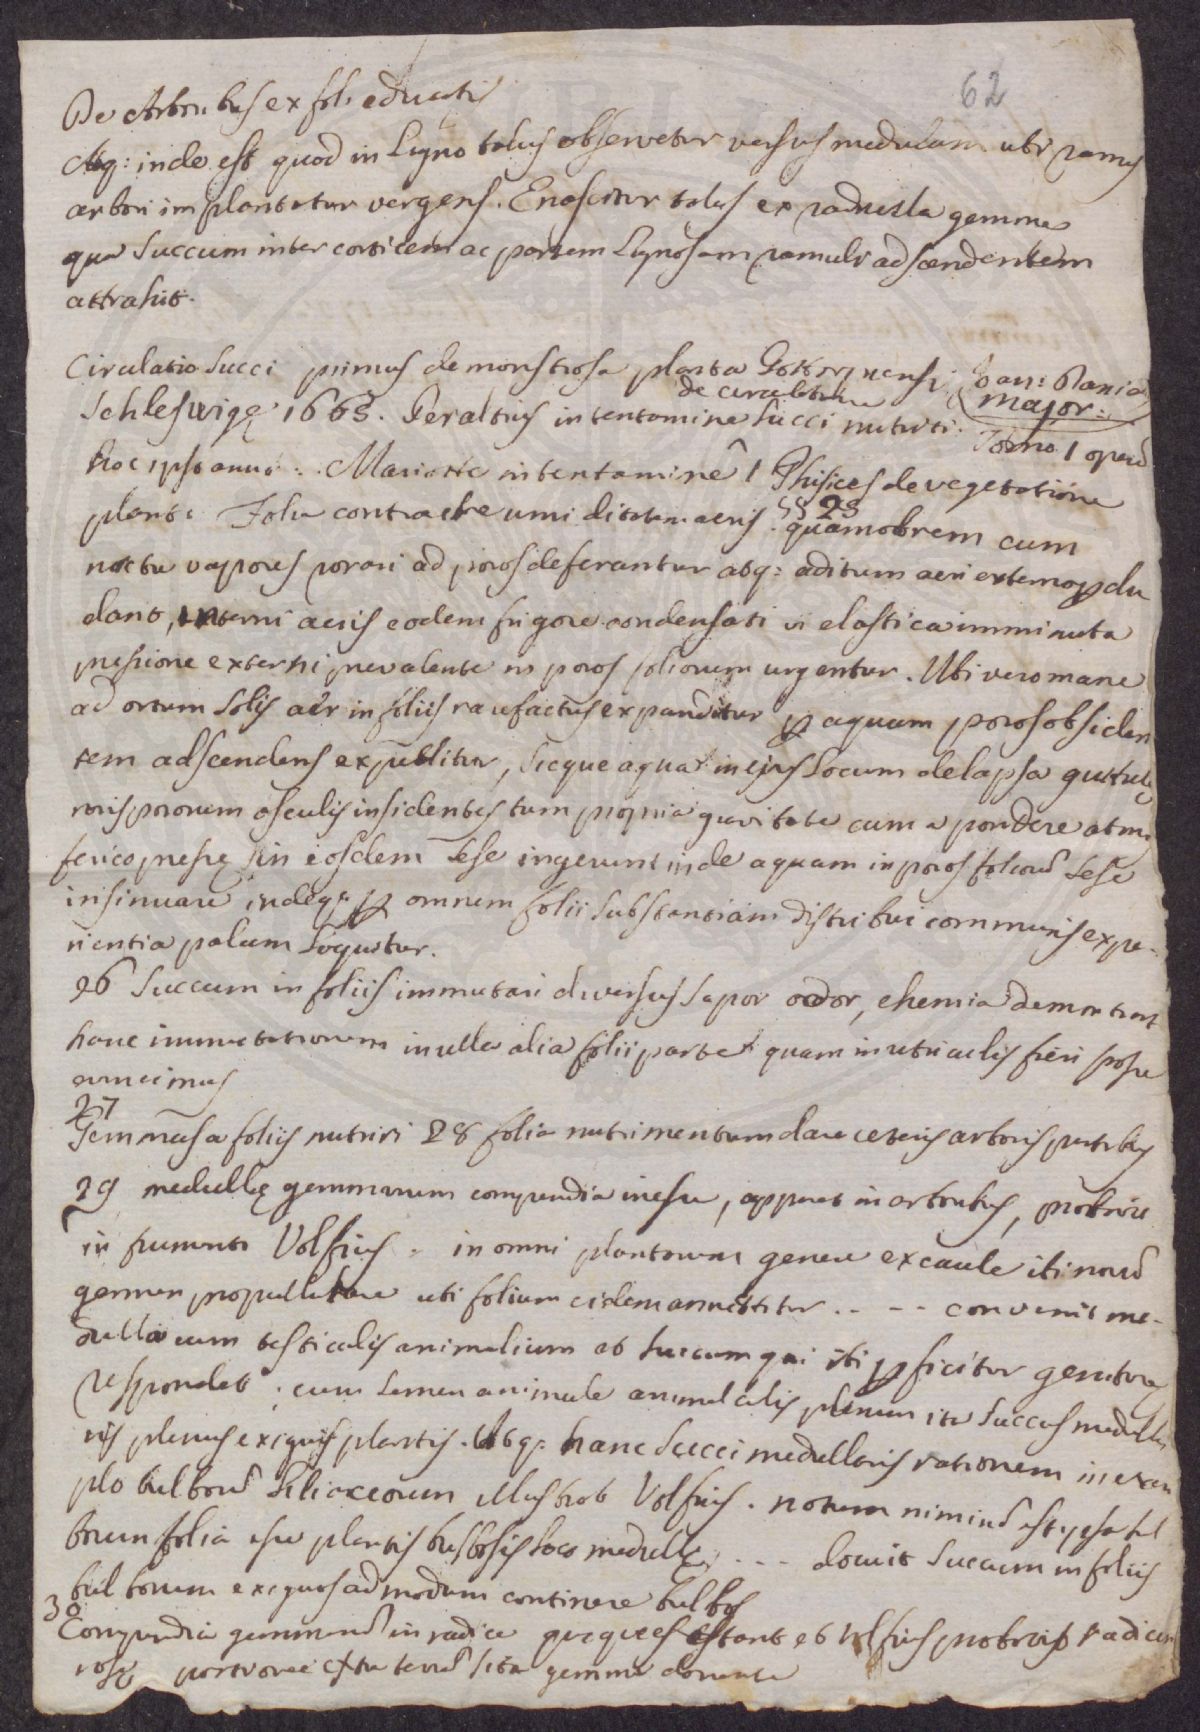 62
De Arboribus ex fol. eductis
Atq: inde est quod in Ligno talus observetur versus medulam ubi ramus
arbori implantatur vergens. Enascitur talus ex radicula gemmae
qua Succum inter corticem ac partem Lignosam ramuli adscendentem
attrahit.
Circulatio Succi primus demonstrosa planta Gottorpiensi Joan: Dania
major:
Schleswigę 1665. Peraltius in tentamine de circulatione Succi nutriti. Tomo 1 operū
hoc ipso anno. Mariotte in tentamine 1 Phisices de vegetatione
plant: Folia contrahere umiditatem aeris. §§ 23 quamobrem cum
noctu vapores rorari ad poros deferantur atq: aditum aeri externo
dant, interni aeris eodem frigore condensati vi elastica imminuta
pressione externi prevalente in poros foliorum urgentur. Ubi vero mane
ad ortum Solis aër in foliis rarefactus expanditur aquam poros obsiden
tem adscendens expellitur, Sicque aqua in ejus Locum delapsa guttulę
roris pororum osculis insidentes tum propria gravitate cum a pondere atmo
ferico presę in eosdem Sese ingerunt inde aquam in poros foliorū Sese
insinuare indeq: omnem folii Substantiam distribui communis expe-
rientia palam Loquitur.
26 Succum in foliis immutari diversus Sapor odor, chemia demonstrat
hanc immutationem in nulla alia folii parte quam in utriculis fieri posse
evincimus
27
Gemmas a foliis nutriri 28 folia nutrimentum dare ceteris arboris partibus
29 medullę gemmarum compendia inesse, apparet in arboribus, probare
in frumento Volfius. in omni plantarum genere ex caule ibi novū
germen propullulare ubi folium eidem annectitur .. -- convenit me-
dulla cum testiculis animalium et Succum qui ibi pficitur geniturę
respondet. cum Semen animale animalculis plenum ita Succus medulla
ris plenus exiguis plantis. Atq: hanc Succi medullaris rationem in exem
plo bulborū Liliaceorum illustrat Volfius. notum nimirū est, ipsa bul
borum folia esse plantis bulbosis Loco medullę. --- docuit Succum in foliis
bulborum exiguos admodum continere bulbos
30
Compendia gemmarū in radice queque exstant et Volfius probavit radicem
rosę portione extra terrā Sita gemma donata